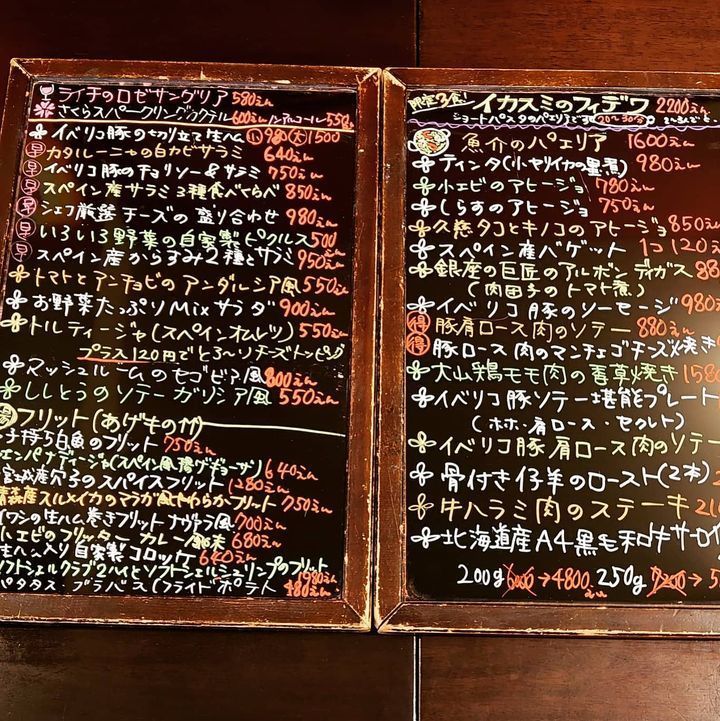 ライチのロゼサングリア 580えん
さくらスパークリングカクテル 600えん ノンアルコール 550えん
イベリコ豚の切り立て生ハム 小980 大1500
早 カタルーニャの白カビサラミ 640えん
早 イベリコ豚のチョリソー&サラミ 750えん
早 スペイン産サラミ3種食べくらべ 850えん
早 シェフ厳選チーズの盛り合わせ 980えん
早 いろいろ野菜の自家製ピクルス 500
早 スペイン産からすみ2種とサラミ 950えん
トマトとアンチョビのアンダルシア風 550えん
お野菜たっぷりMixサラダ 900えん
トルティージャ(スペインオムレツ) 550えん
プラス120円でとろ～りチーズトッピング
マッシュルームのセゴビア風 800えん
ししとうのソテーガリシア風 550えん
揚 フリット(あげもの
子持ち白魚のフリット 750えん
エンパナディージャ(スペイン風揚げギョーザ) 640えん
宮城産穴子のスパイスフリット 1280えん
青森産スルメイカのマラガ風やわらかフリット 750えん
イワシの生ハム巻きフリット ナヴァラ風 700えん
小エビのフリッター カレー風味 680えん
生ハム入り自家製コロッケ 640えん
ソフトシェルクラブ2ハイとソフトシェルシュリンプのフリット 1980えん
パタタス ブラバス(フライドポテト) 480えん
限定3食! イカスミのフィデワ 2200えん
ショートパスタのパエリアです 20～30分
魚介のパエリア 1600えん
ティンタ(小ヤリイカの墨煮) 980えん
小エビのアヒージョ 780えん
しらすのアヒージョ 750えん
久慈タコとキノコのアヒージョ 850えん
スペイン産バゲット 1コ 120えん
銀座の巨匠のアルボンディガス 88
(肉団子のトマト煮)
イベリコ豚のソーセージ 980
得 豚肩ロース肉のソテー 880えん
得 豚ロース肉のマンチェゴチーズ焼き
大山鶏モモ肉の香草焼き 1580
イベリコ豚ソテー堪能プレート
(ホホ・肩ロース・セクレト)
イベリコ豚肩ロース肉のソテー
骨付き仔羊のロースト(2本) 2
牛ハラミ肉のステーキ 21
北海道産A4黒毛和牛サーロイ
200g 6000→4800えん 250g 7200→5